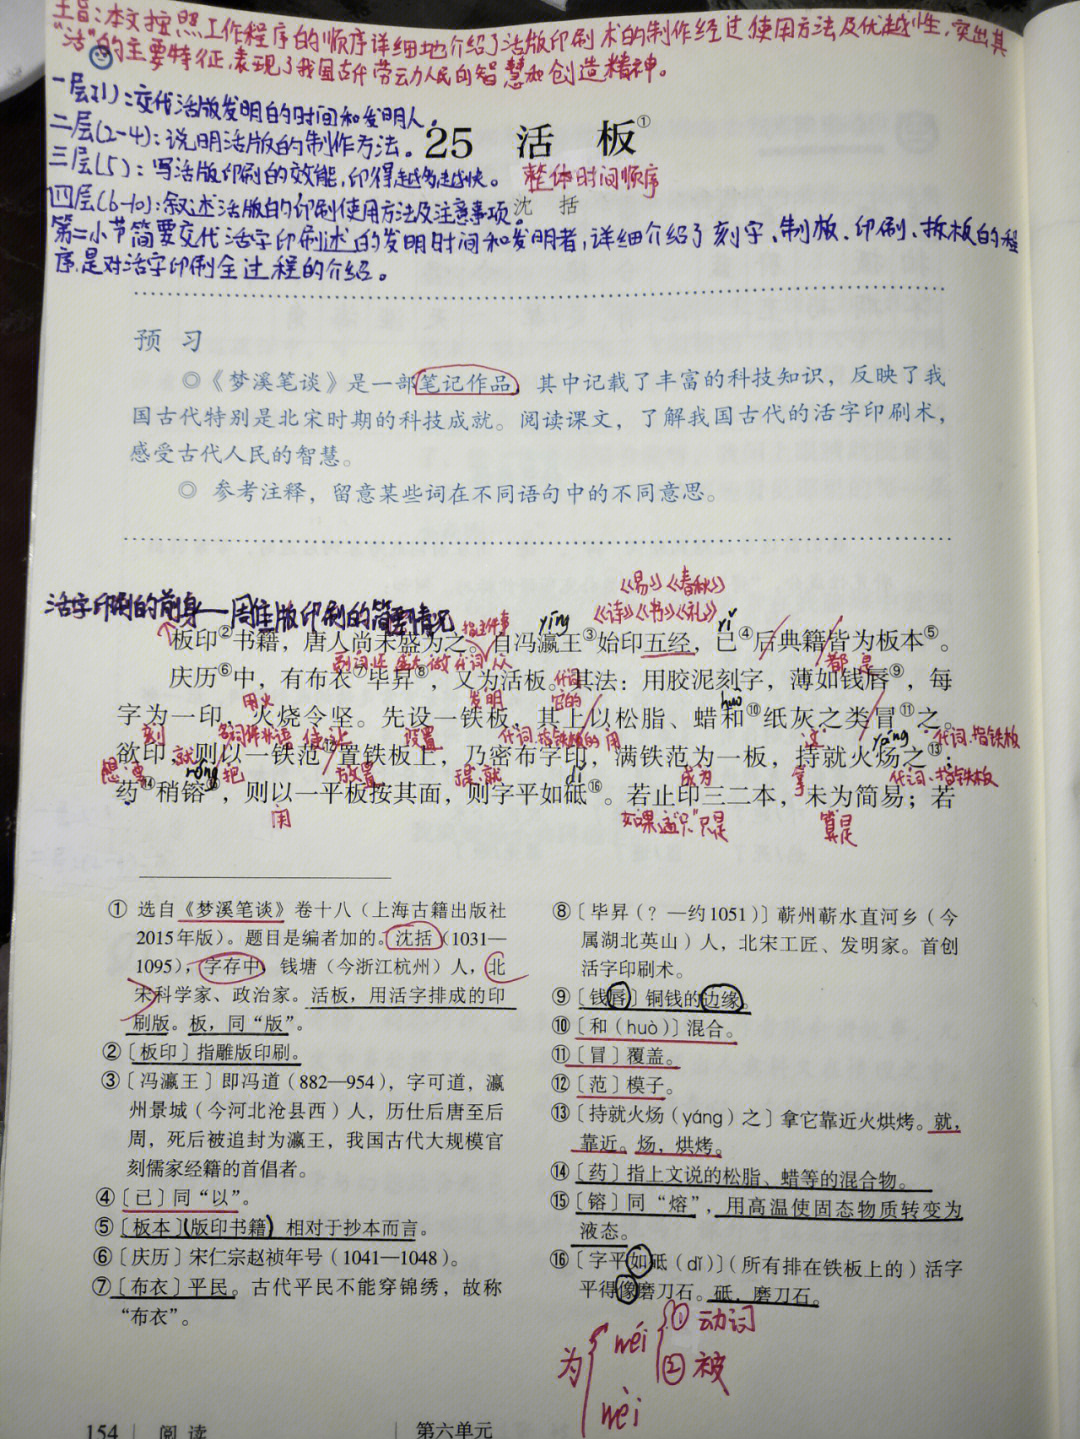 主旨:本文按照工作程序的顺序详细地介绍了活版印刷术的制作经过使用方法及优越性,突出其
“活”的主要特征,表现了我国古代劳动人民的智慧和创造精神。
一层(1):交代活版发明的时间和发明人。
二层(2-4):说明活版的制作方法。
25 活 板①
三层(5):写活版印刷的效能,印得越多越快。
整体时间顺序
四层(6-10):叙述活版的印刷使用方法及注意事项。
沈 括
第二小节简要交代活字印刷术的发明时间和发明者,详细介绍了刻字、制板、印刷、拆板的程
序,是对活字印刷全过程的介绍。
预 习
◎《梦溪笔谈》是一部笔记作品,其中记载了丰富的科技知识,反映了我
国古代特别是北宋时期的科技成就。阅读课文,了解我国古代的活字印刷术,
感受古代人民的智慧。
◎ 参考注释,留意某些词在不同语句中的不同意思。
《易》《春秋》
活字印刷的前身——周佳版印刷的简要情况
《诗》《书》《礼》
yíng
yǐ
板印②书籍,唐人尚未盛为之。自冯瀛王③始印五经,已④后典籍皆为板本⑤。
副词 还 盛大 做 代词 从
都 是
庆历⑥中,有布衣⑦毕昇⑧,又为活板。其法:用胶泥刻字,薄如钱唇⑨,每
用火
发明
代词 它的
huò
字为一印,火烧令坚。先设一铁板,其上以松脂、蜡和⑩纸灰之类冒⑪之。
刻
名词作状语 使,让
设置
代词,指铁板的 用
这
yáng
代词,指铁板
欲印,则以一铁范⑫置铁板上,乃密布字印,满铁范为一板,持就火炀之⑬;
想要
就
róng
把
放置
dǐ
成为
拿
代词,指铁板
药⑭稍镕⑮,则以一平板按其面,则字平如砥⑯。若止印三二本,未为简易;若
用
如果 通“只”只是
算是
① 选自《梦溪笔谈》卷十八(上海古籍出版社
2015年版)。题目是编者加的。沈括(1031—
1095),字存中,钱塘(今浙江杭州)人,北
宋科学家、政治家。活板,用活字排成的印
刷版。板,同“版”。
②〔板印〕指雕版印刷。
③〔冯瀛王〕即冯道(882—954),字可道,瀛
州景城(今河北沧县西)人,历仕后唐至后
周,死后被追封为瀛王,我国古代大规模官
刻儒家经籍的首倡者。
④〔已〕同“以”。
⑤〔板本〕(版印书籍)相对于抄本而言。
⑥〔庆历〕宋仁宗赵祯年号(1041—1048)。
⑦〔布衣〕平民。古代平民不能穿锦绣,故称
“布衣”。
⑧〔毕昇(?—约1051)〕蕲州蕲水直河乡(今
属湖北英山)人,北宋工匠、发明家。首创
活字印刷术。
⑨〔钱唇〕铜钱的边缘。
⑩〔和(huò)〕混合。
⑪〔冒〕覆盖。
⑫〔范〕模子。
⑬〔持就火炀(yáng)之〕拿它靠近火烘烤。就,
靠近。炀,烘烤。
⑭〔药〕指上文说的松脂、蜡等的混合物。
⑮〔镕〕同“熔”,用高温使固态物质转变为
液态。
⑯〔字平如砥(dǐ)〕(所有排在铁板上的)活字
平得像磨刀石。砥,磨刀石。
为
wéi
①动词
②被
wèi
154 阅 读
第六单元